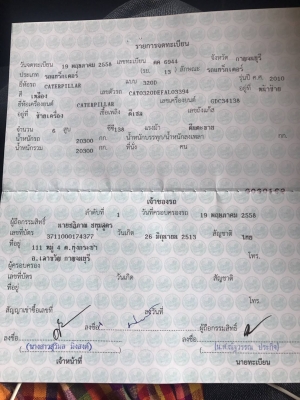 รายการจดทะเบียน
วันจดทะเบียน 19 พฤษภาคม 2558 เลขทะเบียน ตค 6944 จังหวัด กาญจนบุรี
ประเภท รถแทรกเตอร์ (รย. 13 ) ลักษณะ รถแทรกเตอร์
ยี่ห้อรถ CATERPILLAR แบบ 320D รุ่นปี ค.ศ. 2010
สี เหลือง เลขตัวรถ CAT0320DEFAL03394 อยู่ที่
ยี่ห้อเครื่องยนต์ CATERPILLAR เลขเครื่องยนต์ GDC34138
อยู่ที่ ข้างเครื่อง เชื้อเพลิง ดีเซล เลขถังแก๊ส
จำนวน 6 สูบ ซีซี 138 แรงม้า
น้ำหนักรถ 20300 กก. น้ำหนักบรรทุก/น้ำหนักลงเพลา กก.
น้ำหนักรวม 20300 กก. ที่นั่ง คน
เจ้าของรถ
ลำดับที่ 1 วันที่ครอบครองรถ 19 พฤษภาคม 2558
ผู้ถือกรรมสิทธิ์
เลขที่บัตร 3711000174377 วันเกิด 26 มิถุนายน 2513 สัญชาติ ไทย
ที่อยู่ 111 หมู่ 4 โทร.
กาญจนบุรี
ผู้ครอบครอง
เลขที่บัตร วันเกิด สัญชาติ
ที่อยู่
โทร.
สัญญาเช่าซื้อเลขที่ ลงวันที่
ลงชื่อ ผู้ถือกรรมสิทธิ์
ลงชื่อ ลงชื่อ
เจ้าหน้าที่ นายทะเบียน